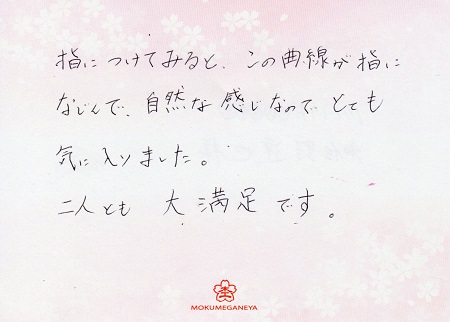 指につけてみると、この曲線が指に
なじんで、自然な感じなのでとても
気に入りました。
二人とも 大満足です。
MOKUMEGANEYA